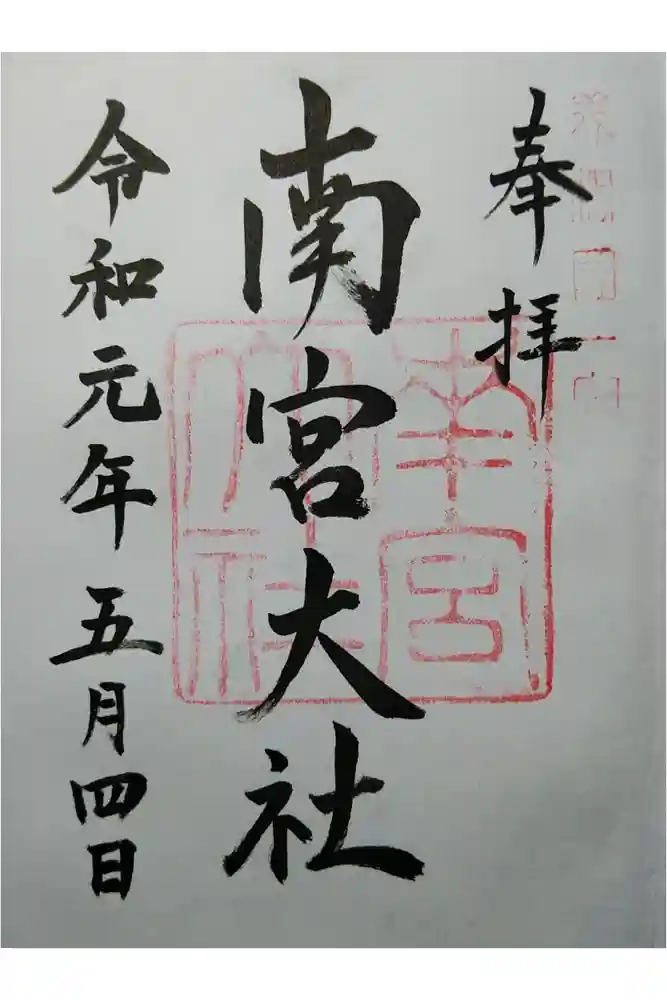 奉拝
南宮大社
南宮大社
令和元年五月四日